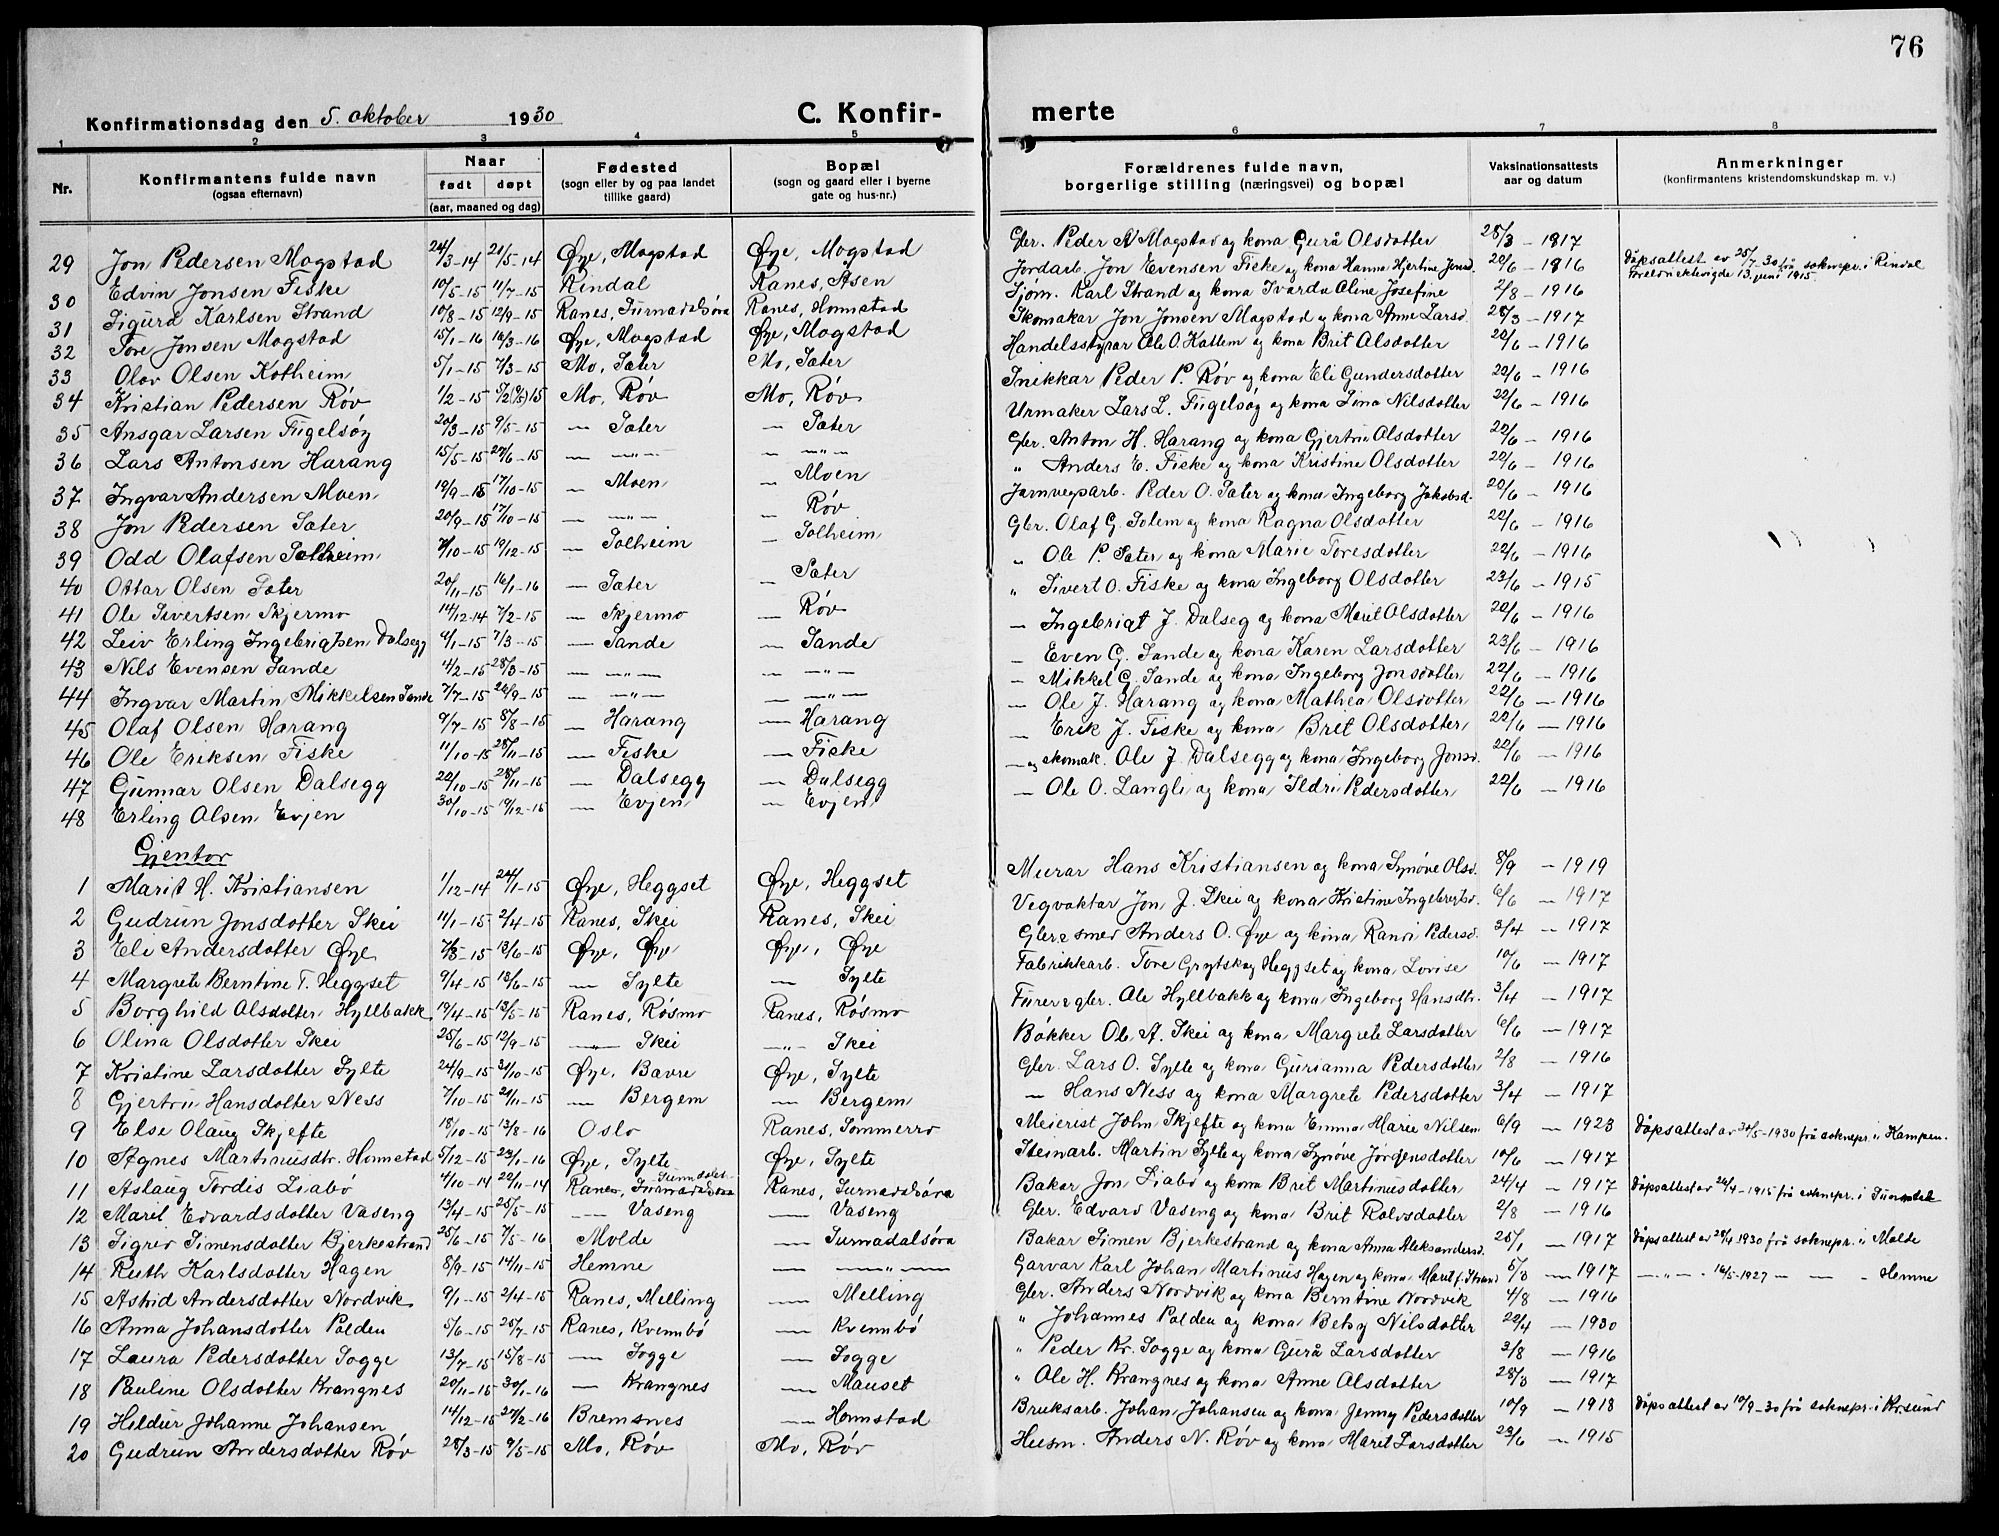 76
Konfirmationsdag den 5. oktober 1930
C. Konfir-
merte
1 2 3 4 5 6 7 8
Nr.
Konfirmantens fulde navn
(ogsaa efternavn)
Naar
født døpt
(aar, maaned og dag)
Fødested
(sogn eller by og paa landet
tillike gaard)
Bopæl
(sogn og gaard eller i byerne
gate og hus-nr.)
Forældrenes fulde navn,
borgerlige stilling (næringsvei) og bopæl
Vaksinationsattests
aar og datum
Anmerkninger
(konfirmantens kristendomskundskap m. v.)
29 Jon Pedersen Mogstad 24/3-14 21/5-14 Øye, Mogstad Øye, Mogstad Gbr. Peder N Mogstad og kona Gurå Olsdotter 28/3 - 1917
30 Edvin Jonsen Fiske 10/5-15 11/7-15 Rindal Ranes, Åsen Jordarb. Jon Evensen Fiske og kona Hanna Hjertine Jonsd. 20/6 - 1916 Dåpsattest av 25/7-30 frå soknepr. i Rindal
13. juni 1915
31 Sigurd Karlsen Strand 10/8-15 12/9-15 Ranes, Surnadalsøra Ranes, Homstad Sjøm. Karl Strand og kona Ivarda Oline Josefine 2/8 - 1916
32 Tore Jonsen Mogstad 15/1-16 16/3-16 Øye, Mogstad Øye, Mogstad Skomakar Jon Jonsen Mogstad og kona Anne Larsd. 28/3 - 1917
33 Olov Olsen Kotheim 5/1-15 7/3-15 Mo, Sæter Mo, Sæter Handelsstyrar Ole O. Kattem og kona Brit Olsdotter 20/6 - 1916
34 Kristian Pedersen Røv 1/2-15 Mo, Røv Mo, Røv Snikkar Peder P. Røv og kona Eli Gundersdotter 22/6 - 1916
35 Ansgar Larsen Fugelsøy 20/3-15 9/5-15 — Sæter — Sæter Urmaker Lars L. Fugelsøy og kona Lina Nilsdotter 22/6 - 1916
36 Lars Antonsen Harang 15/5-15 27/6-15 — —„— — —„— Gbr. Anton H. Harang og kona Gjertru Olsdotter 22/6 - 1916
37 Ingvar Andersen Moen 19/9-15 17/10-15 — Moen — Moen „ Anders E. Fiske og kona Kristine Olsdotter 22/6 - 1916
38 Jon Pedersen Sæter 20/9-15 17/10-15 — —„— Røv Jarnvegsarb. Peder O. Sæter og kona Ingeborg Jakobsd. 20/6 - 1916
39 Odd Olafsen Solheim 7/10-15 19/12-15 — Solheim — Solheim Gbr. Olaf G. Solem og kona Ragna Olsdotter 22/6 - 1916
40 Ottar Olsen Sæter 20/11-15 16/1-16 — Sæter — Sæter „ Ole P. Sæter og kona Marie Toresdotter 22/6 - 1916
41 Ole Sivertsen Skjermo 14/12-14 7/2-15 — Skjermo — Røv „ Sivert O. Fiske og kona Ingeborg Olsdotter 23/6 - 1915
42 Leiv Erling Ingebrigtsen Dalsegg 4/1-15 7/3-15 — Sande — Sande — Ingebrigt J. Dalseg og kona Marit Olsdotter 20/6 - 1916
43 Nils Evensen Sande 4/2-15 28/3-15 — —„— — —„— — Even G. Sande og kona Karen Larsdotter 23/6 - 1916
44 Ingvar Martin Mikkelsen Sande 7/7-15 26/9-15 — —„— —„— — Mikkel G. Sande og kona Ingeborg Jonsdotter 22/6 - 1916
45 Olaf Olsen Harang 9/7-15 8/8-15 — Harang — Harang — Ole J. Harang og kona Mathea Olsdotter 22/6 - 1916
46 Ole Eriksen Fiske 11/10-15 28/11-15 — Fiske — Fiske — Erik J. Fiske og kona Brit Olsdotter 22/6 - 1916
47 Gunnar Olsen Dalsegg 22/10-15 28/11-15 — Dalsegg — Dalsegg — og skomak. Ole J Dalsegg og kona Ingeborg Jonsd. 22/6 - 1916
48 Erling Olsen Evjen 30/10-15 19/12-15 — Evjen — Evjen — Ole O. Langli og kona Ildri Pedersdotter 22/6 - 1916
Gjentor
1 Marit H. Kristiansen 1/12-14 24/1-15 Øye, Heggset Øye, Heggset Murar Hans Kristiansen og kona Synøve Olsd. 8/9 - 1919
2 Gudrun Jonsdotter Skei 11/1-15 2/4-15 Ranes, Skei Ranes, Skei Vegvaktar Jon J. Skei og kona Kristine Ingebrigtsd. 6/6 - 1917
3 Eli Andersdotter Øye 7/3-15 13/6-15 Øye, Øye Øye, Øye Gbr. & smed Anders O. Øye og kona Randi Pedersd. 3/4 - 1917
4 Margrete Berntine T. Heggset 9/4-15 13/6-15 — Sylte — Sylte Fabrikkarb. Tore Grytskog Heggset og kona Lovise 10/6 - 1917
5 Borghild Olsdotter Hyllbakk 19/4-15 13/5-15 Ranes, Røsmo Ranes, Røsmo Furer & gbr. Ole Hyllbakk og kona Ingeborg Hansdtr. 3/4 - 1917
6 Olina Olsdotter Skei 25/6-15 12/9-15 —„— Skei —„— Skei Bøkker Ole A. Skei og kona Margrete Larsdotter 6/6 - 1917
7 Kristine Larsdotter Sylte 24/9-15 31/10-15 Øye, Bævre Øye, Sylte Gbr. Lars O. Sylte og kona Gurianna Pedersdotter 2/8 - 1916
8 Gjertru Hansdotter Ness 7/10-15 21/11-15 — Bergem — Bergem — Hans Ness og kona Margrete Pedersdotter 3/4 - 1917
9 Else Olaug Skjefte 18/10-15 13/8-16 Oslo Ranes, Sommerro Meierist John Skjefte og kona Emma Marie Nilsen 6/9 - 1923 Dåpsattest av 24/5-1930 frå soknepr. i Kampen.
10 Agnes Martinusdtr. Homstad 5/12-15 23/1-16 Øye, Sylte Øye, Sylte Steinarb. Martin Sylte og kona Synøve Jørgensdotter 10/6 - 1917
11 Aslaug Tordis Liabø 4/10-14 22/11-14 Ranes, Surnadalsøra Ranes, Surnadalsøra Bakar Jon Liabø og kona Brit Martinusdotter 24/4 - 1917 Dåpsattest av 24/4-1915 frå soknepr. i
12 Marit Edvardsdotter Vaseng 13/4-15 25/5-15 — Vaseng — Vaseng Gbr. Edvard Vaseng og kona Brit Rolvsdotter 2/8 - 1916
13 Sigrid Simensdotter Bjerkestrand 25/6-15 7/5-16 Molde — Surnadalsøra Bakar Simen Bjerkestrand og kona Anna Aleksandersd. 25/1 - 1917 Dåpsattest av 24/4 1930 frå soknepr. i Molde
14 Ruth Karlsdotter Hagen 8/9-15 14/11-15 Hemne — —„— Garvar Karl Johan Martinus Hagen og kona Marit f. Strand 5/8 - 1917 —„— - 14/5-1927 — — - Hemne
15 Astrid Andersdotter Nordvik 9/1-15 2/4-15 Ranes, Melling — Melling Gbr. Anders Nordvik og kona Berntine Nordvik 4/8 - 1916
16 Anna Johansdotter Polden 5/6-15 25/7-15 Ranes, Kvennbø — Kvennbø „ Johannes Polden og kona Betsy Nilsdotter 22/4 - 1930
17 Laura Pedersdotter Sogge 13/7-15 15/8-15 — Sogge — Sogge „ Peder Kr. Sogge og kona Gurå Larsdotter 3/8 - 1916
18 Pauline Olsdotter Krangnes 20/11-15 30/1-16 — Krangnes — Mauset „ Ole H. Krangnes og kona Anne Olsdotter 28/3 - 1917
19 Heldur Johanne Johansen 14/12-15 27/2-16 Bremsnes — Homstad Bruksarb. Johan Johansen og kona Jenny Pedersdotter 10/9 - 1918 Dåpsattest av 19/9-30 frå soknepr. i Kr.sund
20 Gudrun Andersdotter Røv 28/3-15 9/5-15 Mo, Røv Mo, Røv Husm. Anders N. Røv og kona Marit Larsdotter 23/6 - 1915